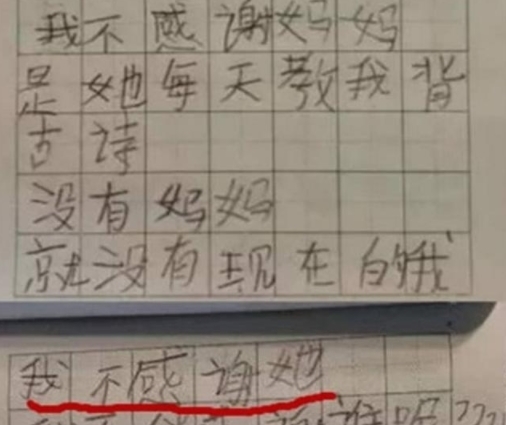 我不感谢妈妈
是她每天教我背
古诗
没有妈妈
就没有现在的我
我不感谢她